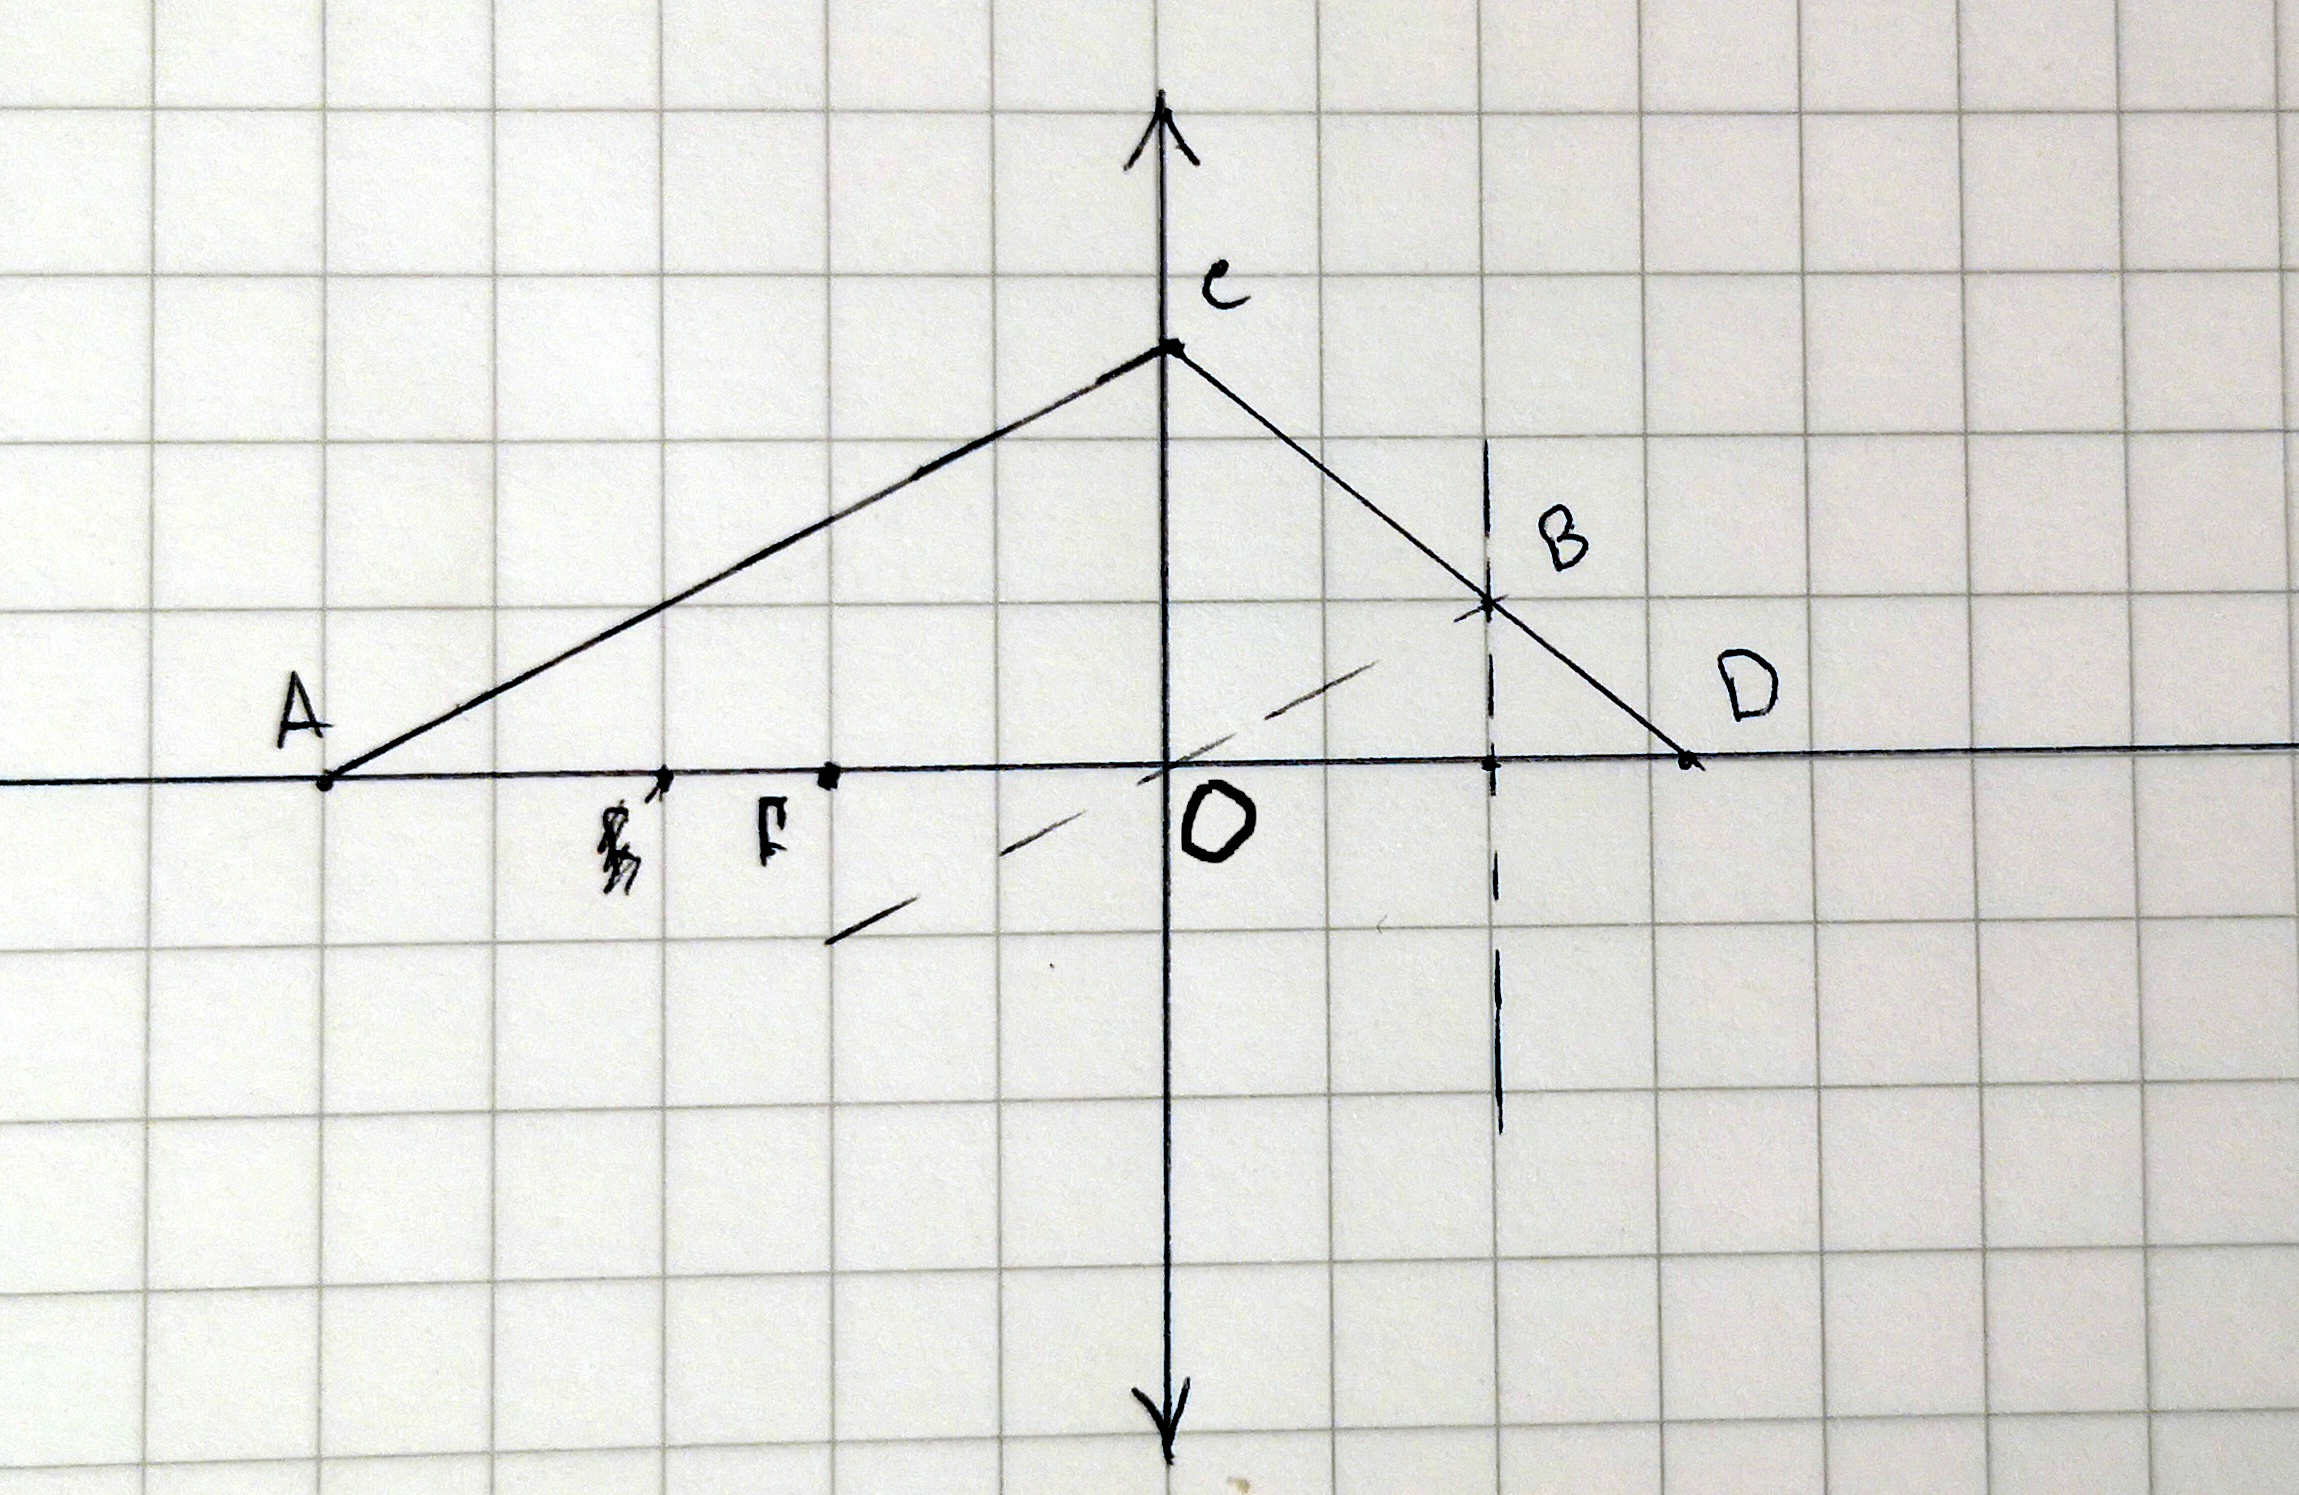 C
B
A
D
F
O